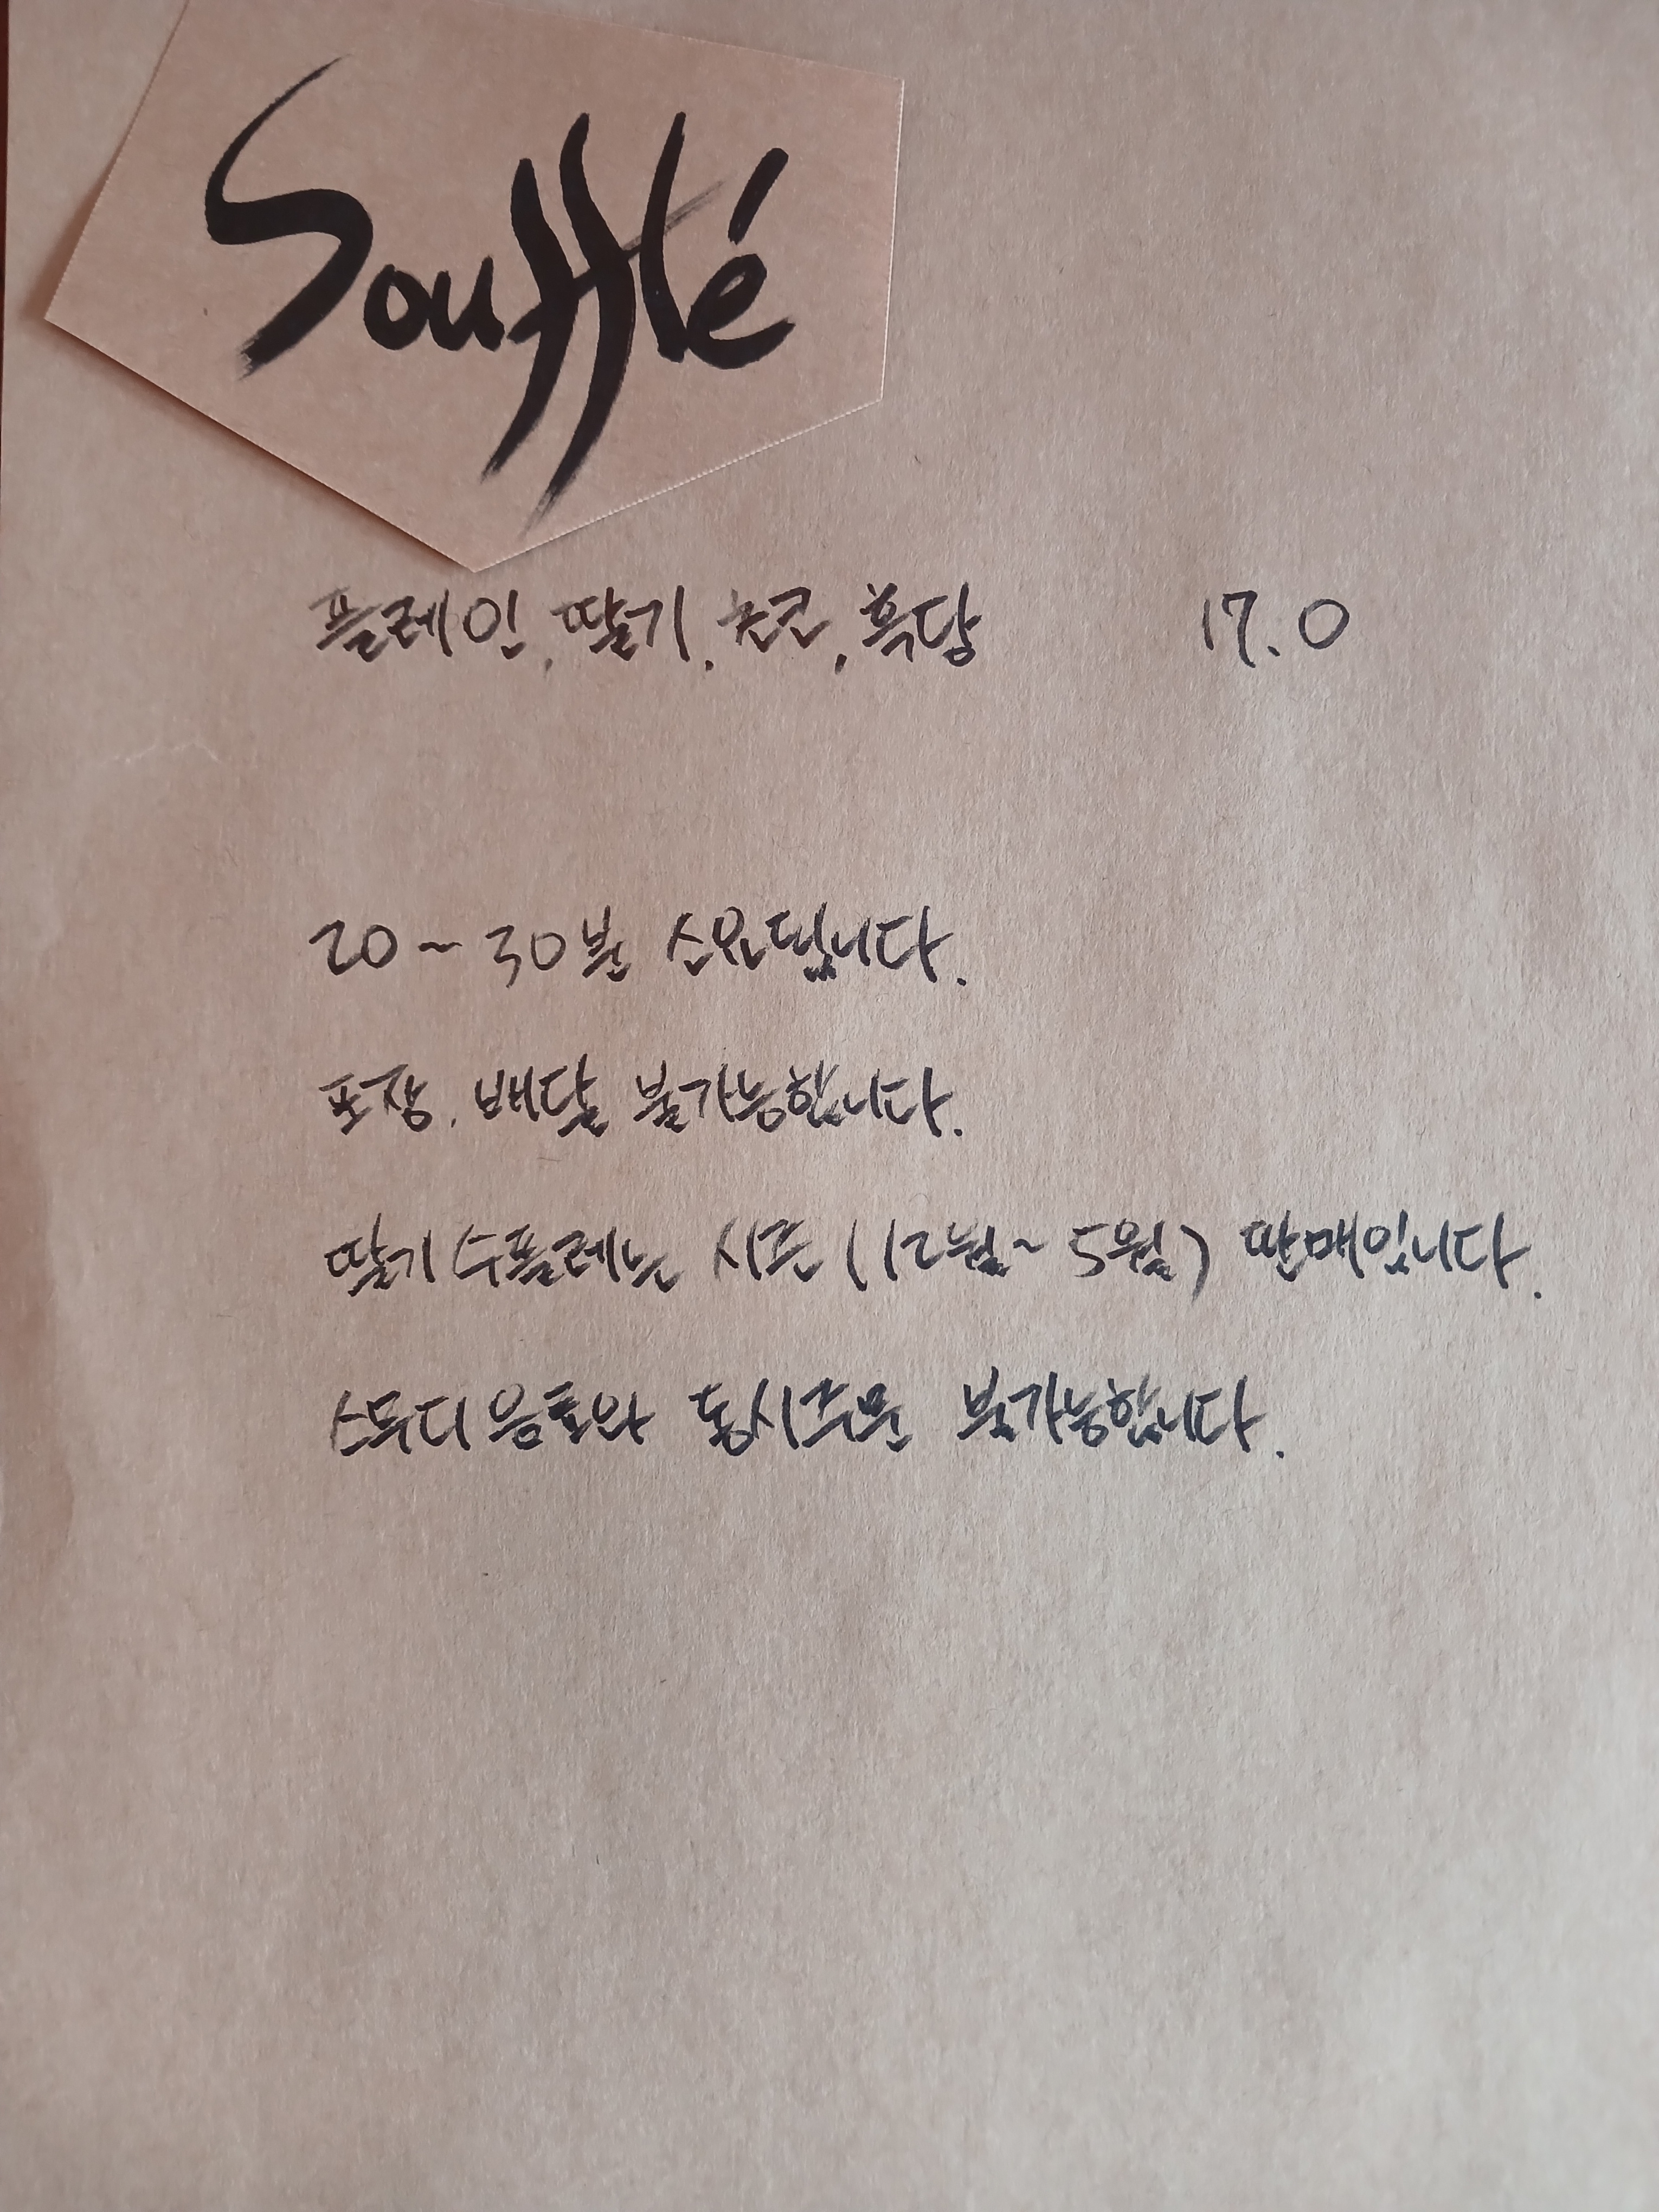 Soufflé
플레인, 딸기, 초코, 흑당 17.0
20~30분 소요됩니다.
포장, 배달 불가능합니다.
딸기수플레는 시즌 (12월~5월) 판매입니다.
동시주문 불가능합니다.